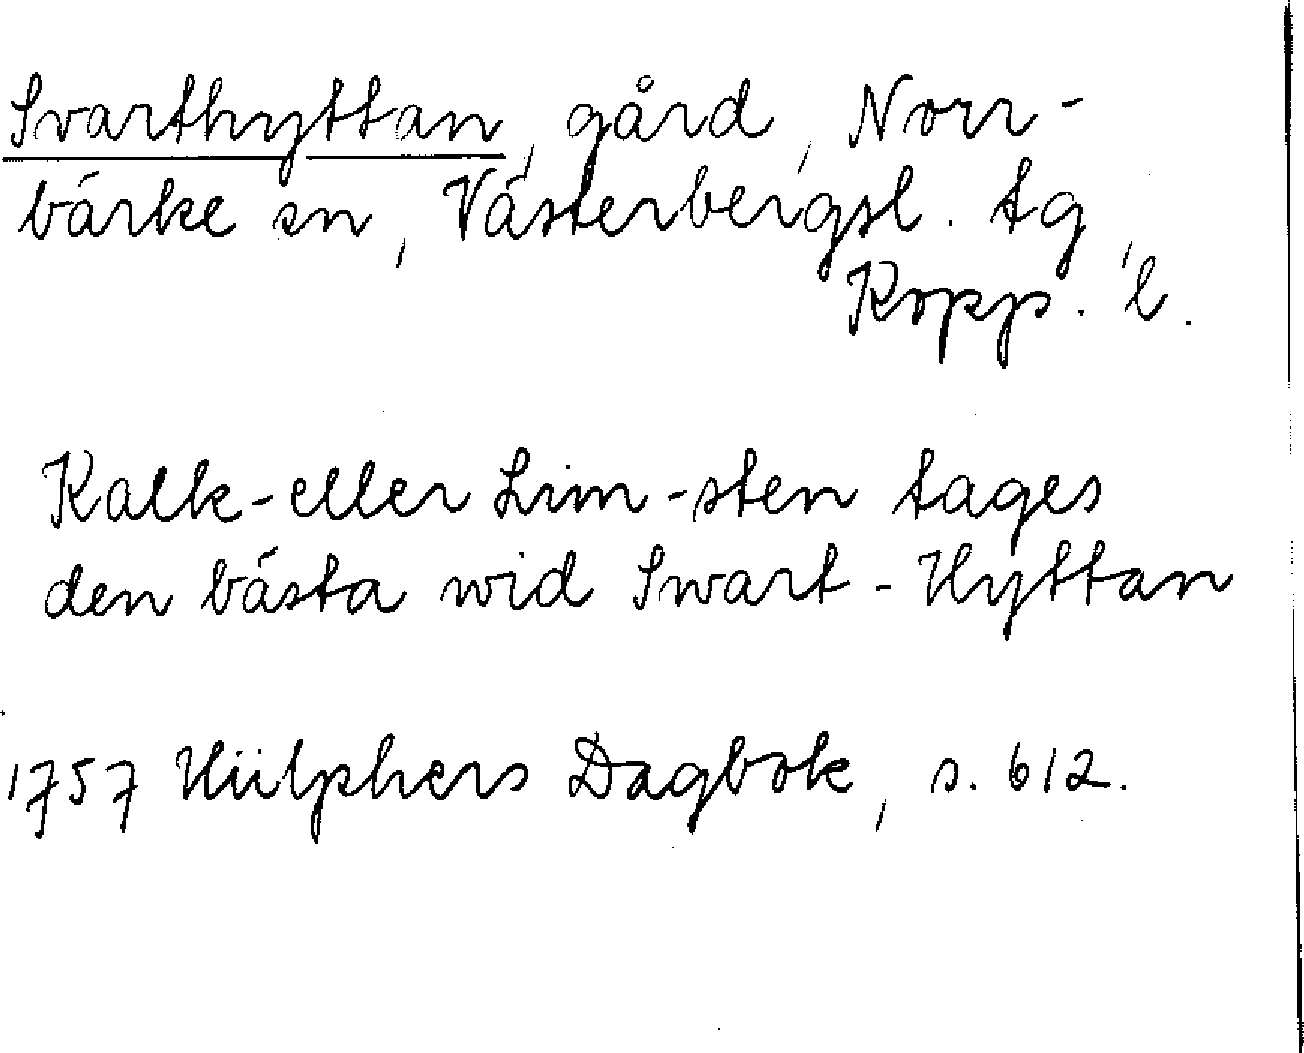 Svarthyttan, gård, Norr-
bärke sn, Västerbergsl. tg,
Kopp. l.
Kalk-eller Lim-sten tages
den bästa wid Swart-Hyttan
1757 Hülphers Dagbok, s. 612.